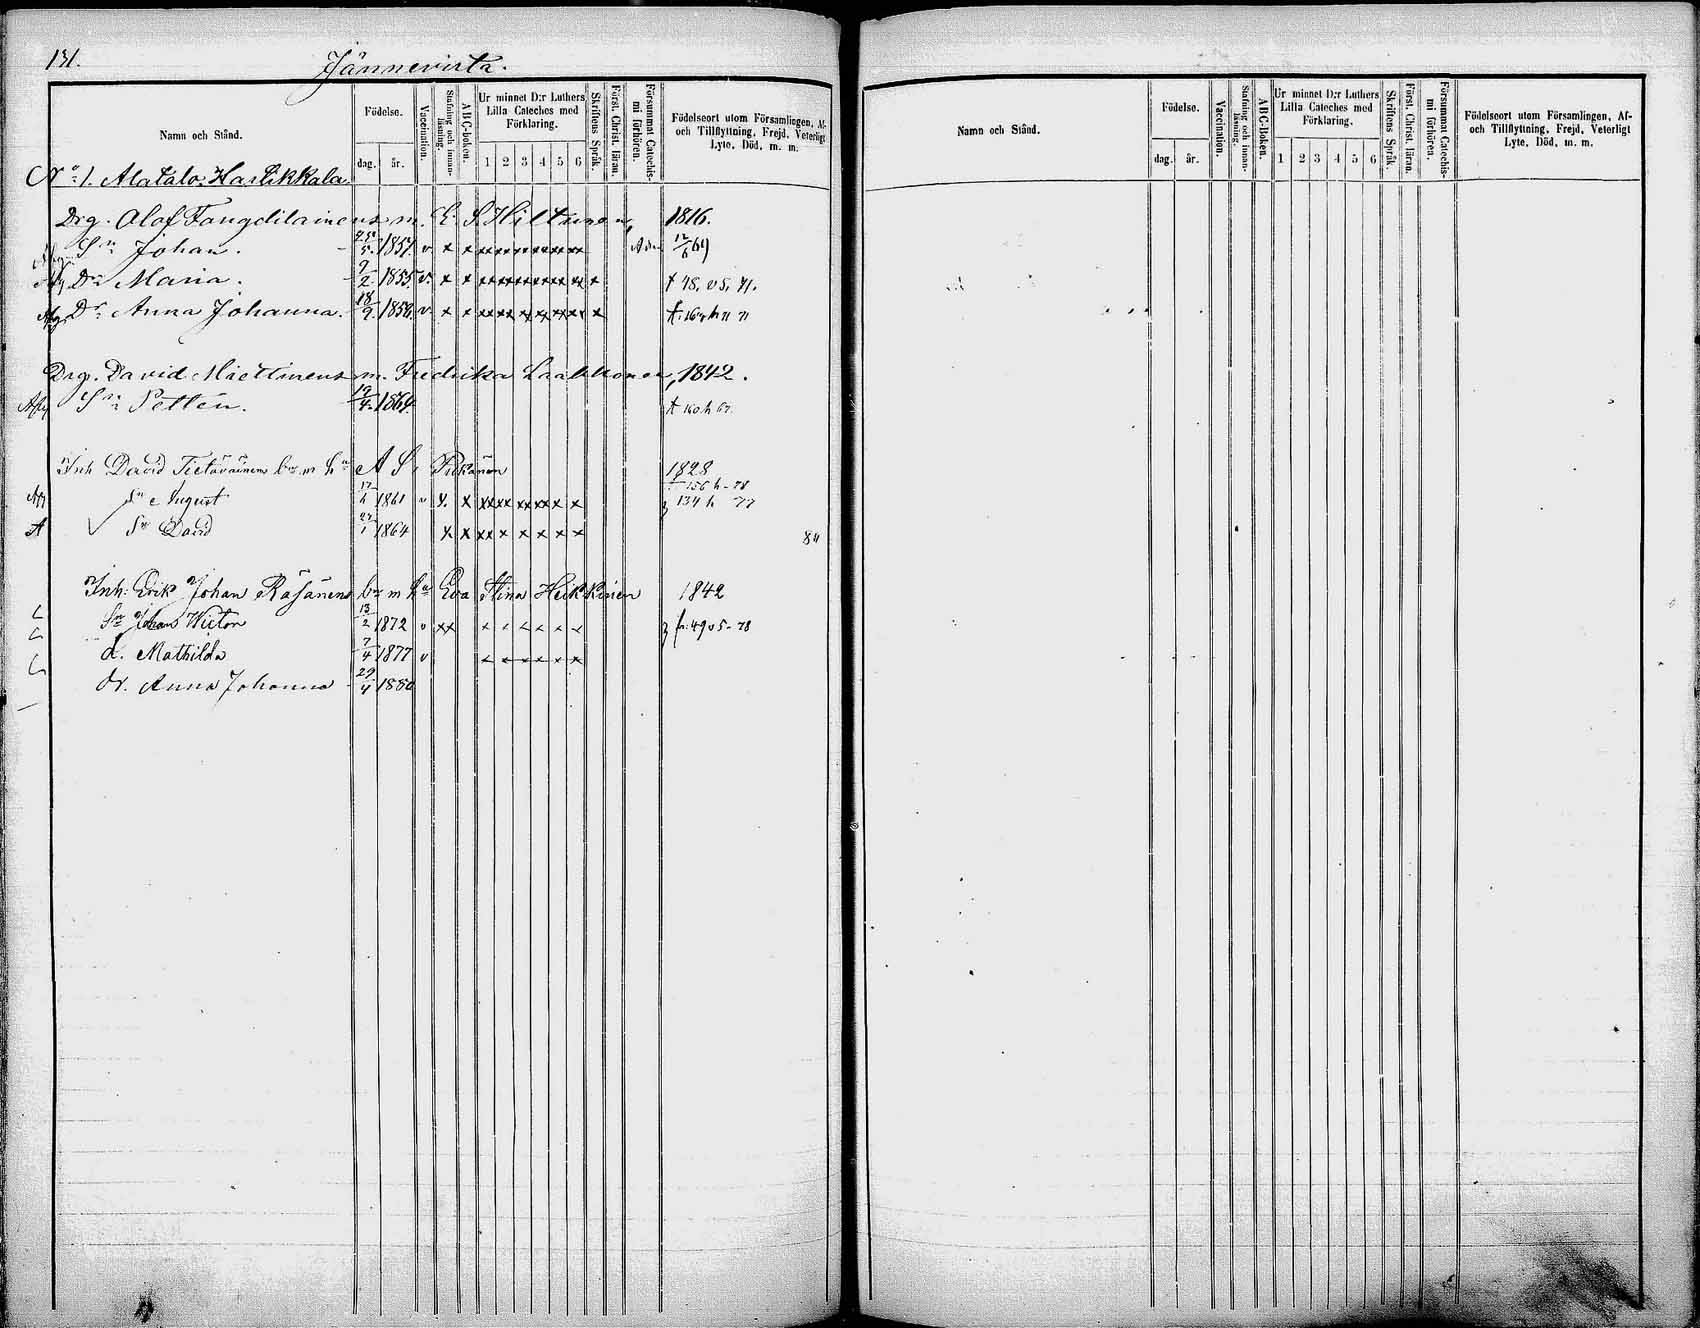 131.
Jännevirta.
Namn och Stånd.
Födelse.
dag.
år.
Vaccination.
Stafning och innanläsning.
ABC-boken.
Ur minnet D:r Luthers Lilla Cateches med Förklaring.
1 2 3 4 5 6
Skriftens Språk.
Först. Christ. läran.
Försummat Catechismi förhören.
Födelseort utom Församlingen, Af- och Tillflyttning, Frejd, Veterligt Lyte, Död, m. m.
No 1. Alatalo. Hartikkala.
Drg. Olof Tangdilainens m. E. S. Hiltunen, 1816.
Sn Johan. 1857. v x x xx xx xx xx xx xx 12/6 69
Dr Maria. 9/2 1855. v. x x xx xx xx xx xx xx x
Dr Anna Johanna. 18/9 1858. v x x xx xx xx xx xx xx x
Drg. David Miettinens m. Fredrika Laakkonen, 1842.
Sn Petter. 19/4 1864.
Inh David Tietäväinens br m hu A S. Pitkänen 1828
Sn August 17/6 1861 v x. x xx xx xx xx x x 134 h 77
Sn David 27/1 1864 x x xx x x x x x 84
Inh: Erik Johan Räsänens br m hu Eva Stina Heikkinen 1842
Sn Johan Wictor 13/2 1872 v xx x x x x x x fr: 49 v 5 - 78
d. Mathilda 7/4 1877 v x x x x x x
dr. Anna Johanna 29/4 1880
Namn och Stånd.
Födelse.
dag.
år.
Vaccination.
Stafning och innanläsning.
ABC-Boken.
Ur minnet D:r Luthers Lilla Cateches med Förklaring.
1 2 3 4 5 6
Skriftens Språk.
Först. Christ. läran.
Försummat Catechismi förhören.
Födelseort utom Församlingen, Af- och Tillflyttning, Frejd, Veterligt Lyte, Död, m. m.